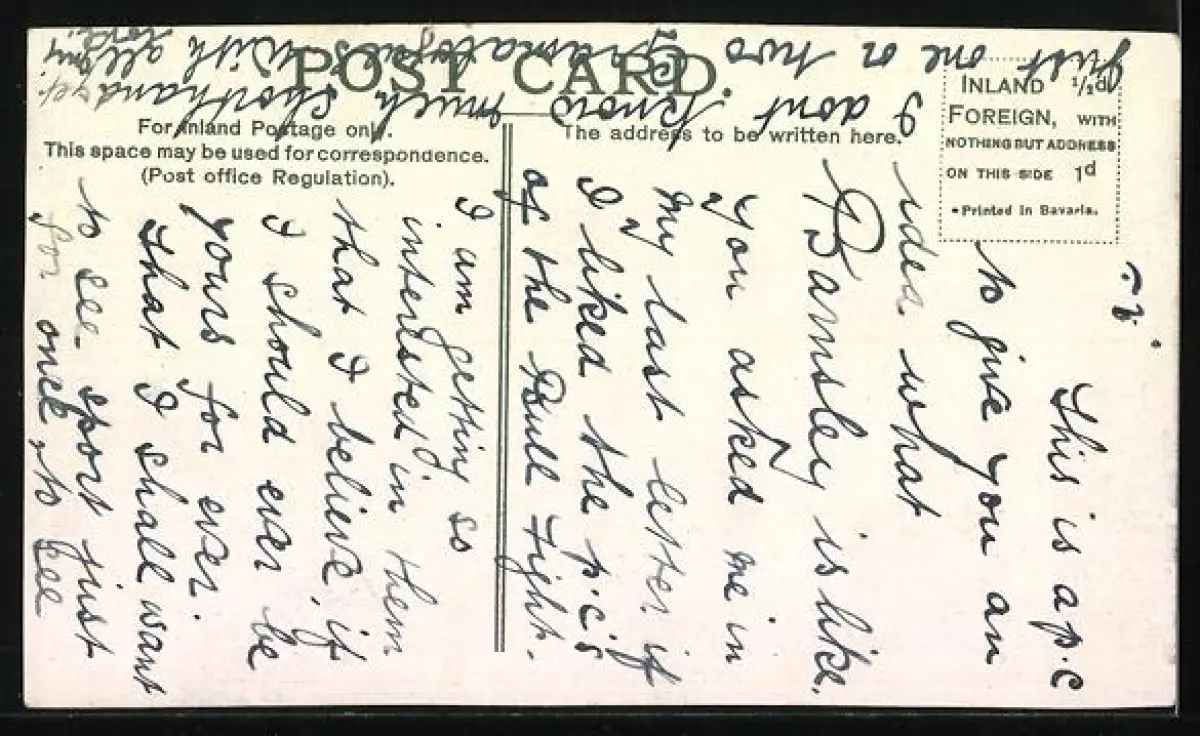 POST CARD.
For Inland Postage only.
This space may be used for correspondence.
(Post office Regulation).
The address to be written here.
INLAND ½d
FOREIGN, WITH
NOTHING BUT ADDRESS
ON THIS SIDE 1d
•Printed in Bavaria.
This is a p.c
to give you an
idea what
Barnsley is like.
You asked me in
my last letter if
I liked the p.c's
of the Bull Fight.
I am getting so
interested in them
that I believe, if
I should ever be
yours for ever.
That I shall want
to see sport just
for once, to see
just one or two
I dont know much shorthand yet
with all my
love.